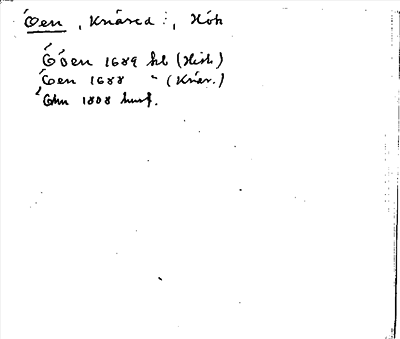 Öen, Knäred :, Höh
Ööen 1689 hl (Hish.)
Öen 1688 " (Knär.)
Öhn 1808 husf.